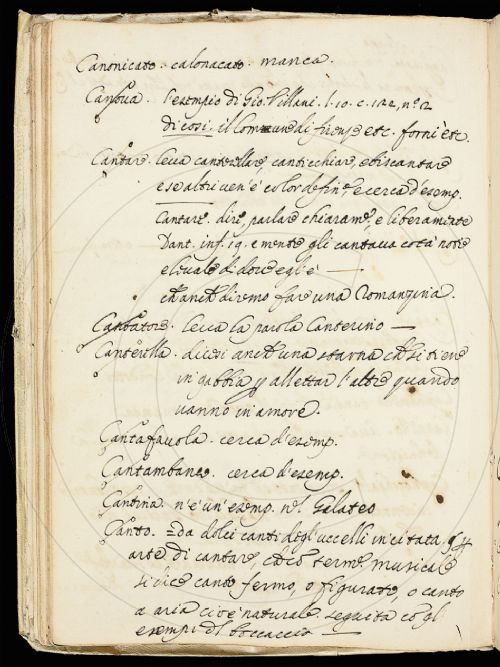 Canonicato. calonacato. manca.
Canova. l'esempio di Gio. Villani. l. 10. c. 122, nº 2
di cosi. il Comune di firenze etc. fornì etc.
Cantare. leva canterellare, canticchiare, e biscantare
e se altri ven'è color defin.e e cerca d'esemp.
Cantare. dire, parlare chiaram.e, e liberamente
Dant. inf. 19. e mentre gli cantava cotai note
e levale di dove egl'è
ch'anch diremo fare una Romanzina.
Cantatore. leva la parola Canterino —
Canterella. dicesi anch una starna che si tiene
in gabbia p allettar l'altre quando
vanno in amore.
Cantafavola. cerca d'esemp.
Cantambanco. cerca d'esemp.
Cantina. n'è un'esemp. nel Galateo
Canto. = da dolci canti degl'uccelli incitata,
arte di cantare, che co termi musicale
si dice canto fermo, o figurato, o canto
a aria cioè naturale seguita co gl'
esempi del boccaccio —